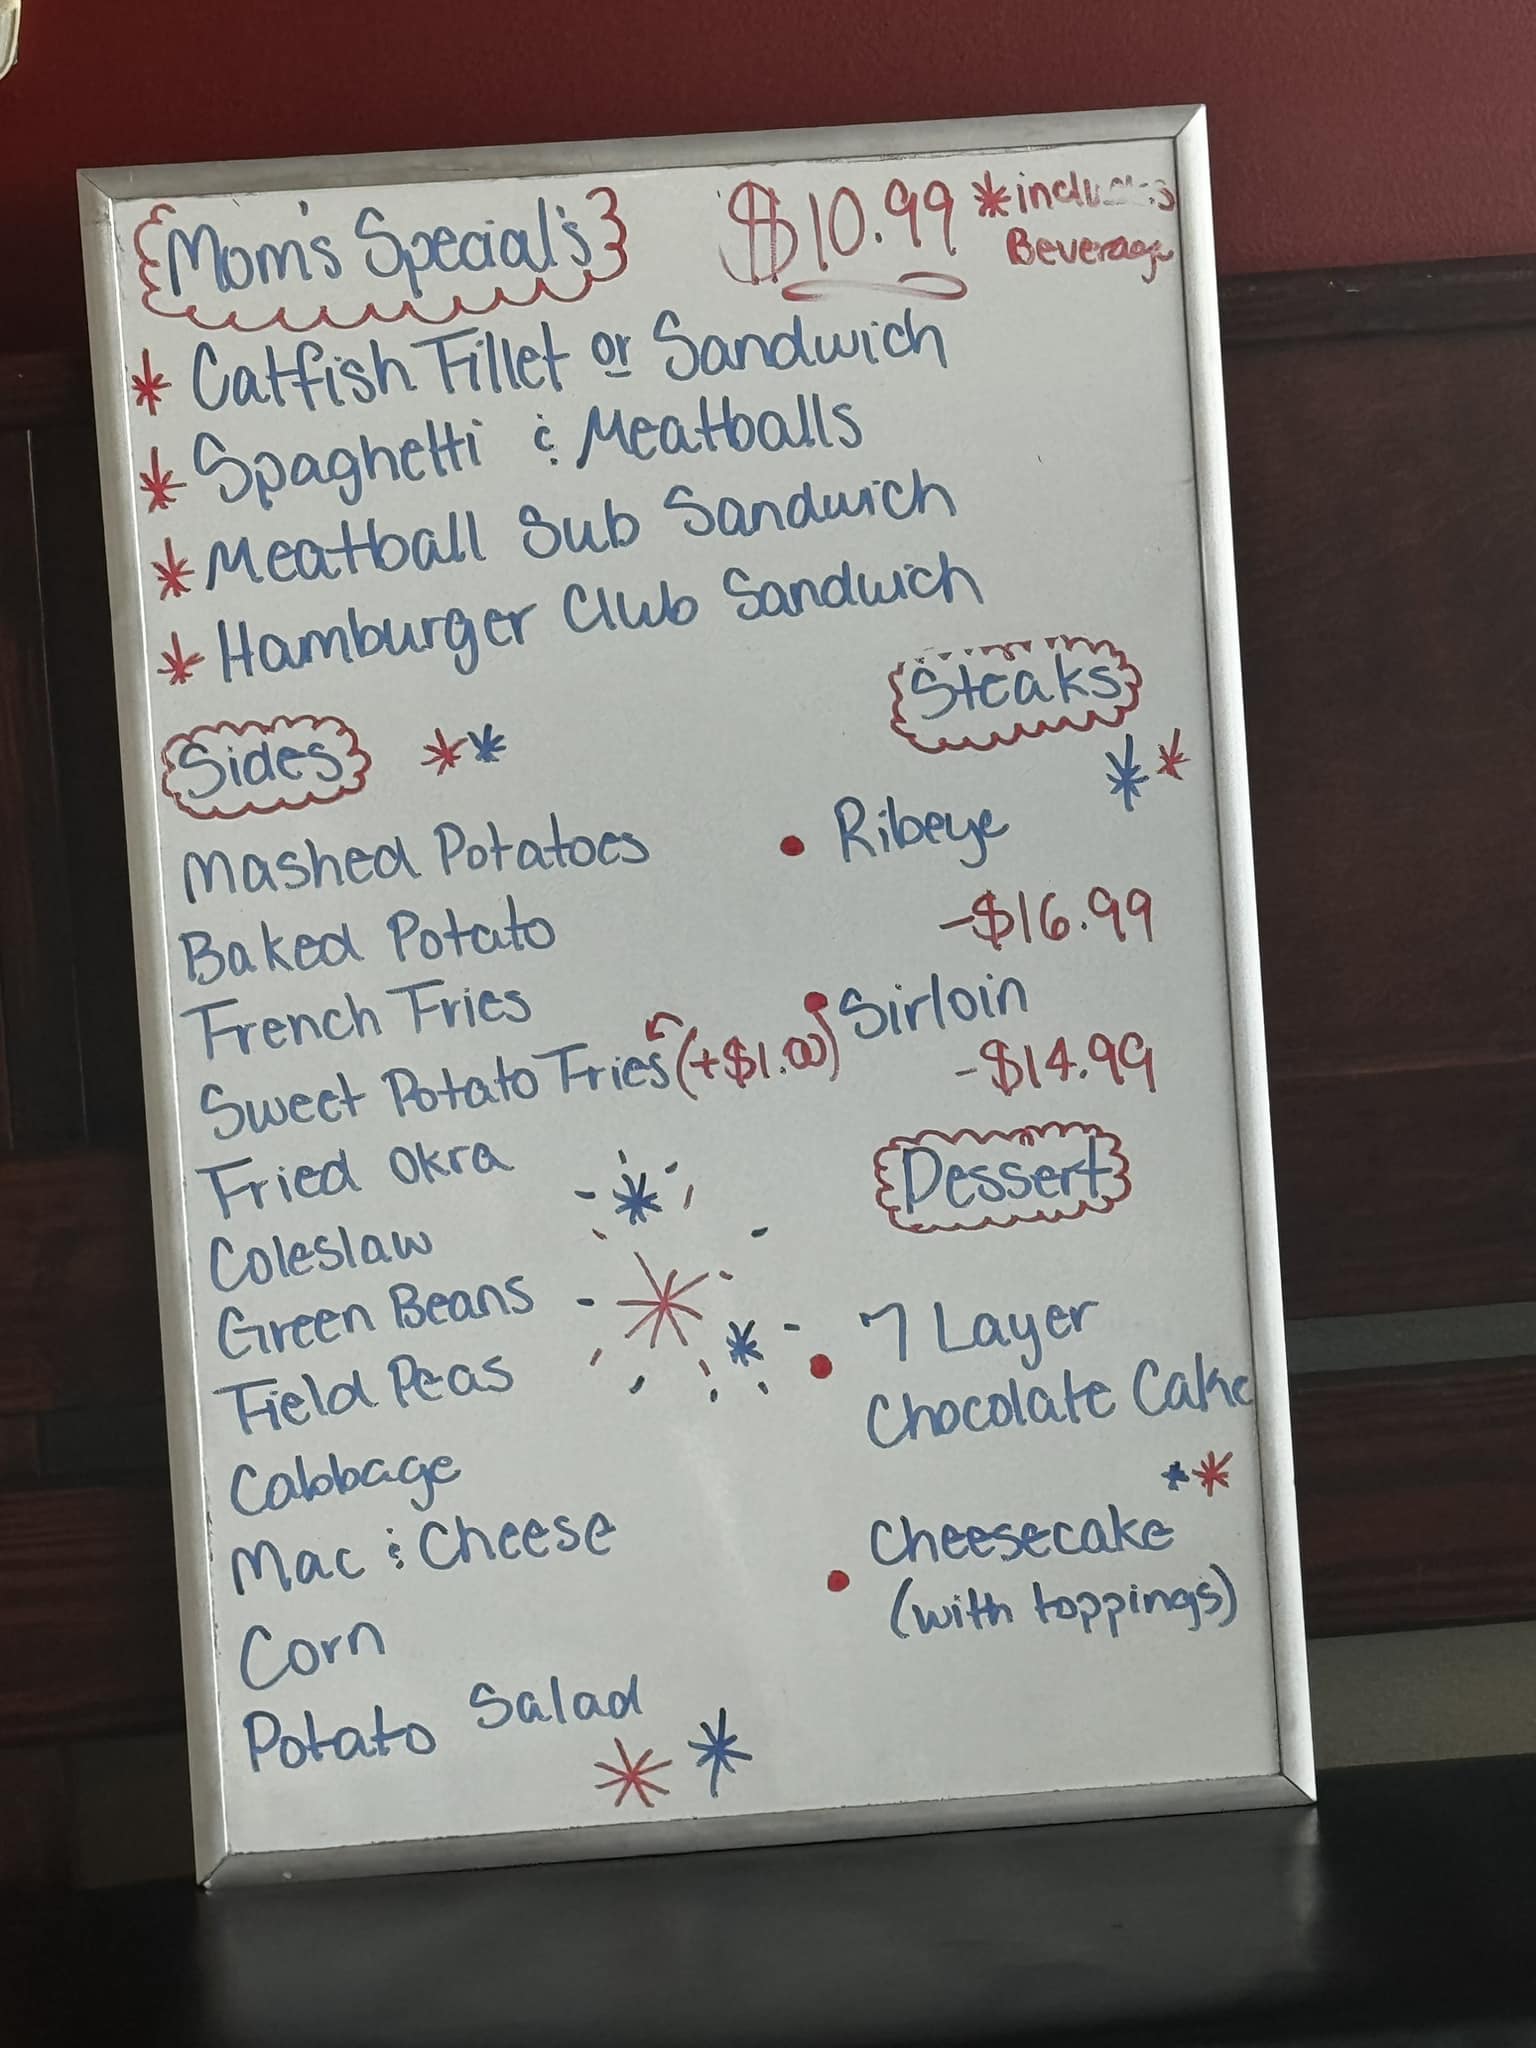 Mom's Special's
$10.99 *includes
Beverage
* Catfish Fillet or Sandwich
* Spaghetti & Meatballs
* Meatball Sub Sandwich
* Hamburger Club Sandwich
Sides
Mashed Potatoes
Baked Potato
French Fries
Sweet Potato Fries (+$1.00)
Fried Okra
Coleslaw
Green Beans
Field Peas
Cabbage
Mac & Cheese
Corn
Potato Salad
Steaks
• Ribeye
-$16.99
• Sirloin
-$14.99
Dessert
• 7 Layer
Chocolate Cake
• Cheesecake
(with toppings)